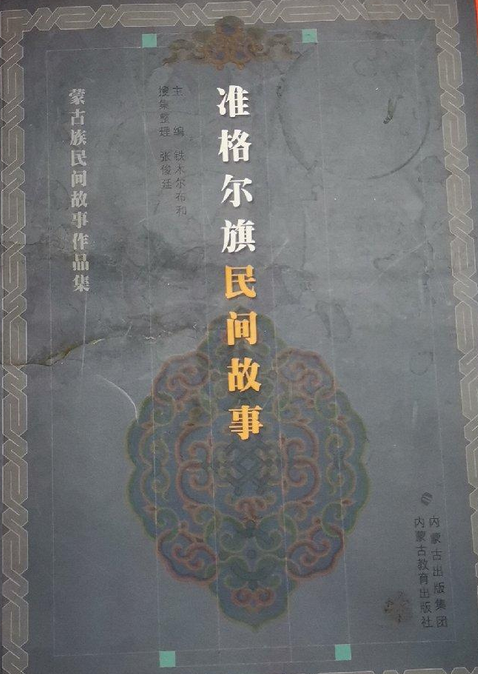 准格尔旗民间故事
主编 铁木尔布和
搜集整理 张俊廷
蒙古族民间故事作品集
内蒙古出版集团
内蒙古教育出版社